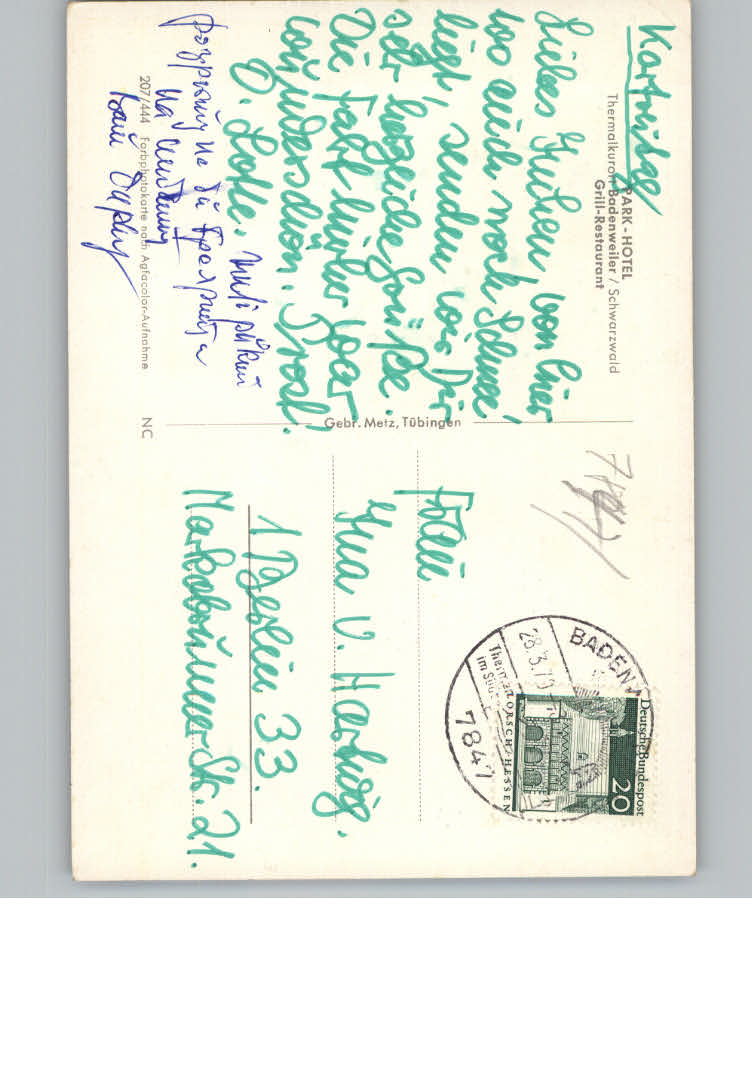 Karfreitag
PARK - HOTEL
Thermalkurort Badenweiler / Schwarzwald
Grill-Restaurant
Liebes Inchen, von hier,
wo auch noch Schnee
liegt, senden wir Dir
sehr herzliche Grüße.
Die Fahrt hierher war
wunderschön. Prost!
D. Lotte.
207/444 Farbphotokarte nach Agfacolor-Aufnahme
NC
Gebr. Metz, Tübingen
Frau
Ina v. Hartwig.
1 Berlin 33.
Markobrunner Str. 21.
BADENW
28.3.70
Therm
im Süd
7847
Deutsche Bundespost
20
LORSCH / HESSEN